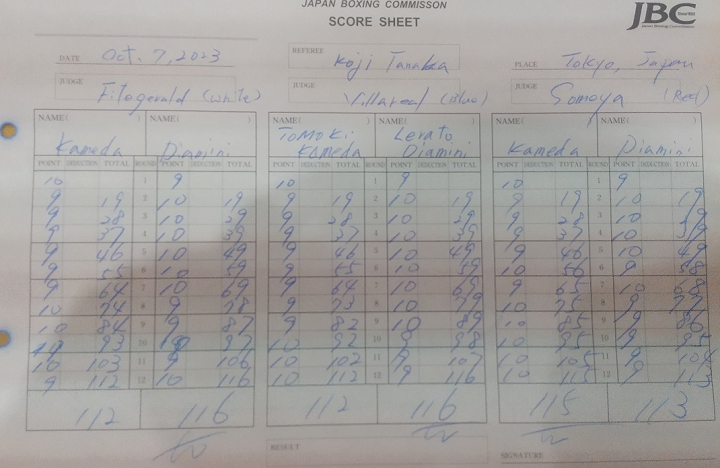 JAPAN BOXING COMMISSON
SCORE SHEET
JBC
DATE Oct. 7, 2023
REFEREE Koji Tanaka
PLACE Tokyo, Japan
JUDGE Fitzgerald (white)
JUDGE Villareal (Blue)
JUDGE Somoya (Red)
NAME( ) NAME( ) NAME( ) NAME( ) NAME( ) NAME( )
Kameda Diamini TOMOKI Kameda Lerato Diamini Kameda Diamini
POINT DEDUCTION TOTAL ROUND POINT DEDUCTION TOTAL POINT DEDUCTION TOTAL ROUND POINT DEDUCTION TOTAL POINT DEDUCTION TOTAL ROUND POINT DEDUCTION TOTAL
10 1 9 10 1 9 10 1 9
9 19 2 10 19 9 19 2 10 19 9 19 2 10 19
9 28 3 10 29 9 28 3 10 29 9 28 3 10 29
9 37 4 10 39 9 37 4 10 39 9 37 4 10 39
9 46 5 10 49 9 46 5 10 49 9 46 5 10 49
9 55 6 10 59 9 55 6 10 59 10 56 6 9 58
9 64 7 10 69 9 64 7 10 69 9 65 7 10 68
10 74 8 9 78 9 73 8 10 79 10 75 8 9
10 84 9 9 87 9 82 9 10 89 10 85 9 9 86
93 10 97 10 92 10 9 98 10 9 95
10 103 11 9 106 10 102 11 9 107 10 105 11 9 104
9 112 12 10 116 10 112 12 9 116 10 115 12 9 113
112 116 112 116 115 113
RESULT
SIGNATURE